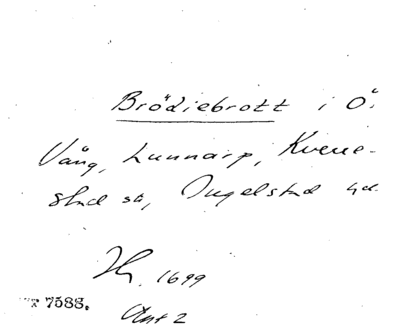 Brödiebrott i Ö.
Vång, Lunnarp, Kverre-
stad sn, Ingelstad hd.
Hr. 1699
7588.
Ant 2